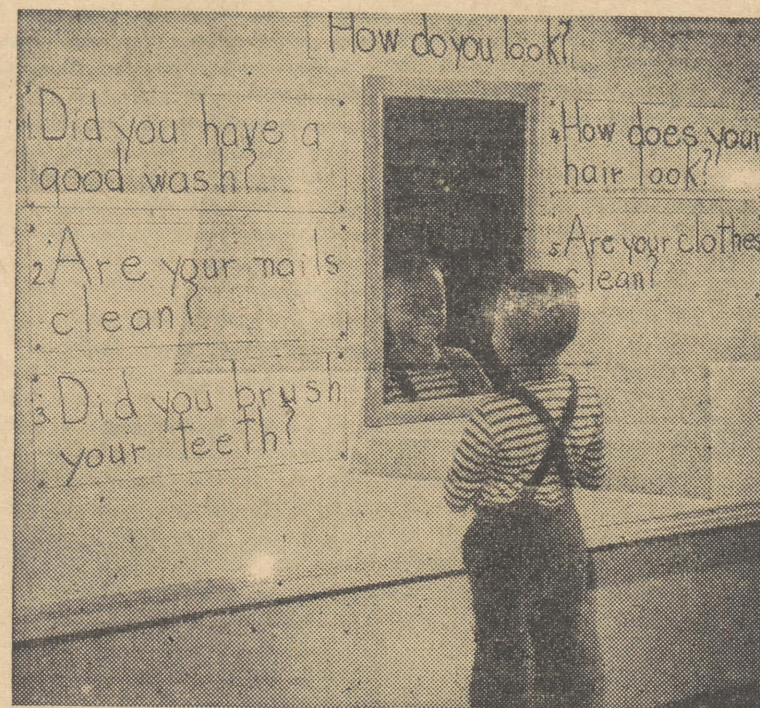 How do you look?
1. Did you have a
good wash?
2. Are your nails
clean?
3. Did you brush
your teeth?
4. How does your
hair look?
5. Are your clothes
clean?